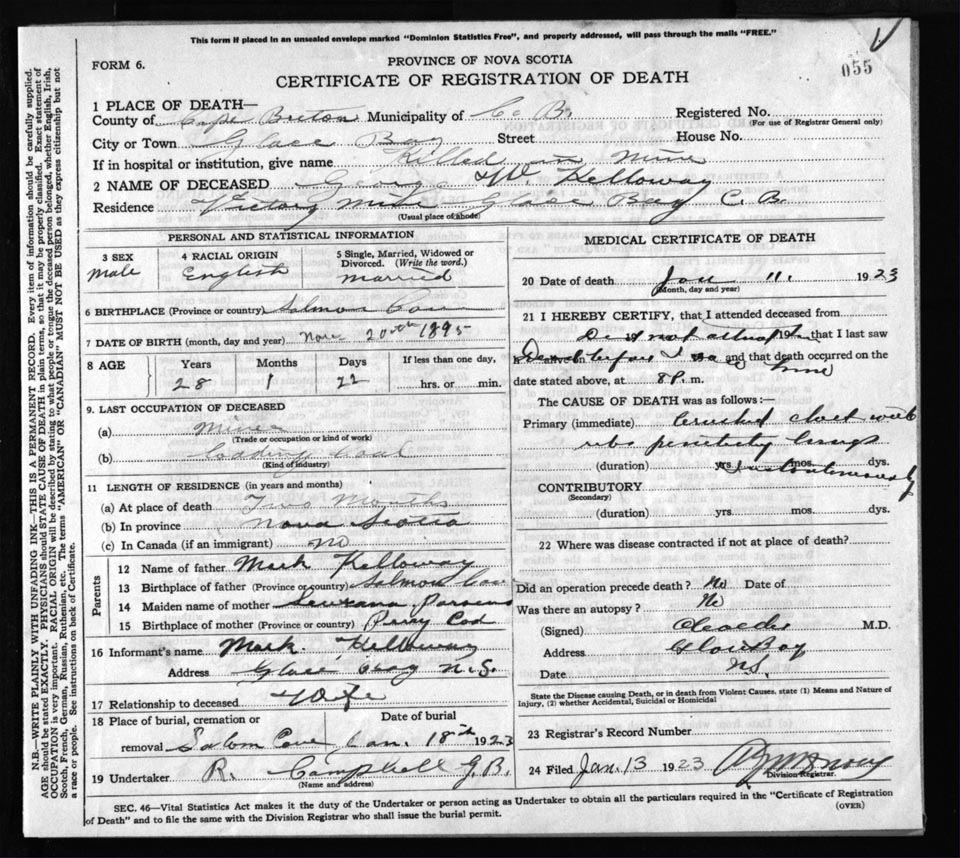 This form if placed in an unsealed envelope marked "Dominion Statistics Free", and properly addressed, will pass through the mails "FREE."
FORM 6.
PROVINCE OF NOVA SCOTIA
055
CERTIFICATE OF REGISTRATION OF DEATH
1 PLACE OF DEATH—
County of Cape Breton Municipality of Co B. Registered No.
(For use of Registrar General only)
City or Town Glace Bay Street House No.
If in hospital or institution, give name Killed in mine
2 NAME OF DECEASED George W. Kelloway
Residence Victory Mine Glace Bay C. B.
(Usual place of abode)
PERSONAL AND STATISTICAL INFORMATION
3 SEX 4 RACIAL ORIGIN 5 Single, Married, Widowed or Divorced. (Write the word.)
Male English Married
6 BIRTHPLACE (Province or country) Salmon Cove
7 DATE OF BIRTH (month, day and year) Nov 20th 1895
8 AGE Years Months Days If less than one day,
28 1 22 hrs. or min.
9. LAST OCCUPATION OF DECEASED
(a) Miner
(Trade or occupation or kind of work)
(b) loading Coal
(Kind of industry)
11 LENGTH OF RESIDENCE (in years and months)
(a) At place of death Two Months
(b) In province Nova Scotia
(c) In Canada (if an immigrant) No
Parents
12 Name of father Mark Kelloway
13 Birthplace of father (Province or country) Salmon Cove
14 Maiden name of mother Parsons
15 Birthplace of mother (Province or country)
16 Informant's name Mark. Kelloway
Address Glace Bay N.S.
17 Relationship to deceased Wife
18 Place of burial, cremation or removal Date of burial
Salom Cove Jan. 18th 1923
19 Undertaker R. Campbell G.B.
(Name and address)
MEDICAL CERTIFICATE OF DEATH
20 Date of death Jan 11. 1923
(Month, day and year)
21 I HEREBY CERTIFY, that I attended deceased from
Did not attend that I last saw
Dead before I and that death occurred on the
date stated above, at 8 P. m.
The CAUSE OF DEATH was as follows:—
Primary (immediate) Crushed chest with
ribs lungs
(duration) yrs. mos. dys.
CONTRIBUTORY
(Secondary)
(duration) yrs. mos. dys.
22 Where was disease contracted if not at place of death?
Did an operation precede death? No Date of
Was there an autopsy? No
(Signed) M.D.
Address Glace Bay
Date N.S.
State the Disease causing Death, or in death from Violent Causes, state (1) Means and Nature of
Injury, (2) whether Accidental, Suicidal or Homicidal
23 Registrar's Record Number
24 Filed Jan. 13 1923
Division Registrar.
SEC. 46—Vital Statistics Act makes it the duty of the Undertaker or person acting as Undertaker to obtain all the particulars required in the "Certificate of Registration
of Death" and to file the same with the Division Registrar who shall issue the burial permit.
(OVER)
N.B.—WRITE PLAINLY WITH UNFADING INK—THIS IS A PERMANENT RECORD. Every item of information should be carefully supplied.
AGE should be stated EXACTLY. PHYSICIANS should STATE CAUSE OF DEATH in plain terms, so that it may be properly classified. Exact statement of
OCCUPATION is very important. RACIAL ORIGIN will be described by stating to what people or tongue the deceased person belonged, whether English, Irish,
Scotch, French, German, Russian, Ruthenian, etc. The terms "AMERICAN" OR "CANADIAN" MUST NOT BE USED as they express citizenship but not
a race or people. See instructions on back of Certificate.